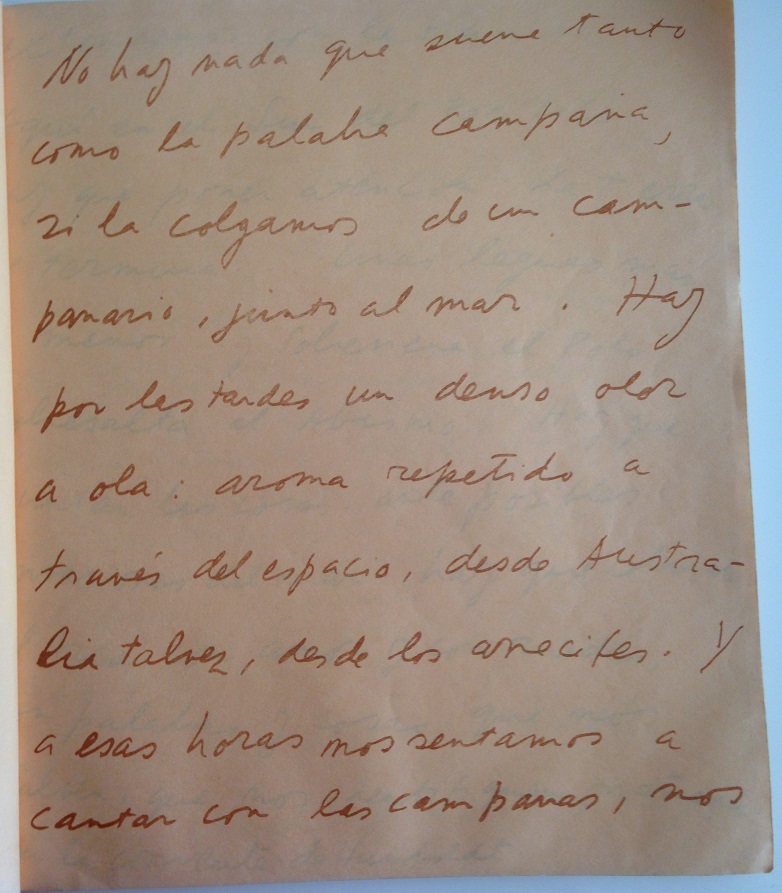 No hay nada que suene tanto
como la palabra campana,
si la colgamos de un cam-
panario, junto al mar. Hay
por las tardes un denso olor
a ola: aroma repetido a
través del espacio, desde Austra-
lia talvez, desde los arrecifes. Y
a esas horas nos sentamos a
cantar con las campanas, nos